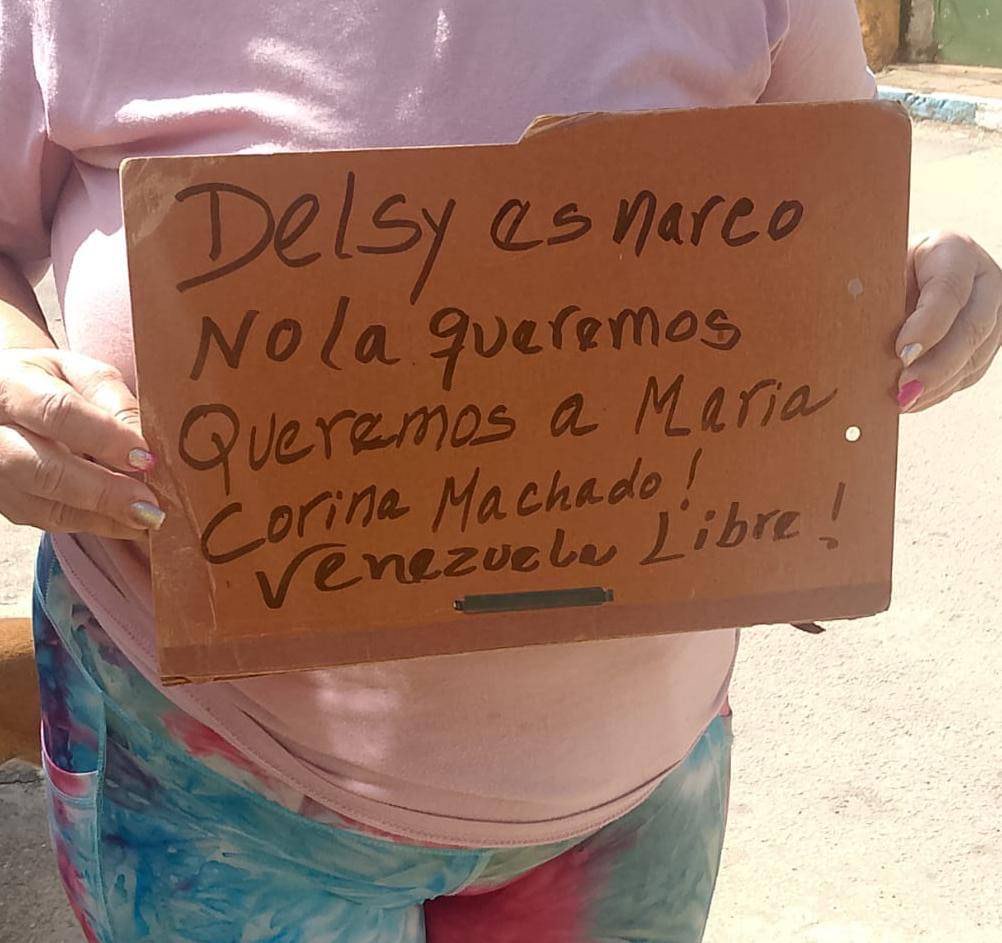 Delsy es narco
No la queremos
Queremos a Maria
Corina Machado!
Venezuela Libre!